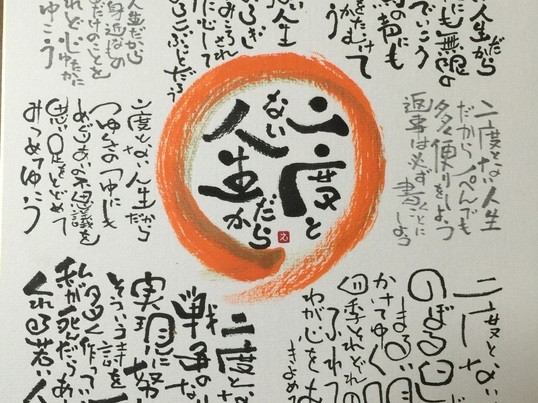 い人生だから
にも無限の
でいこう
の声にも
かたむけて
う
い人生
ろぎ
ころさ
に心して
ろこぶことだろう
人生だから
身近な
だけのことを
れど心ゆたかに
ゆこう
二度とない人生
だから一ぺんでも
多く便りをしよう
返事は必ず
書くことに
しよう
二度と
ない
人生
だから
二度とない人生だから
つゆくさのつゆにも
めぐりあいの不思議を
思い足をとどめて
みつめてゆこう
二度とな
のぼる日
まるい月
かけてゆく
四季それぞれの
ふれて
わが心を
きよめて
二度とな
戦争のな
実現に努
そういう詩を
多く作ってい
私が死んだらあ
くれる若い人